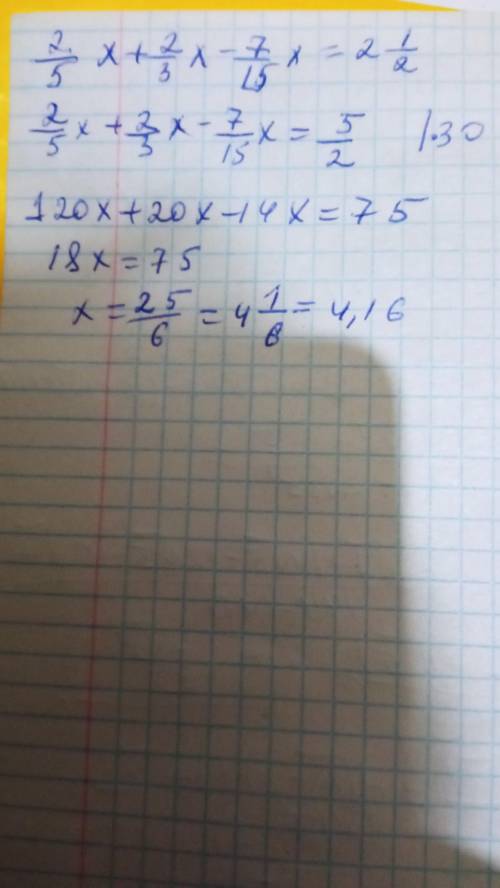 2/5 x + 2/3 x - 7/15 x = 2 1/2
2/5 x + 2/3 x - 7/15 x = 5/2 |·30
120x + 20x - 14x = 75
18x = 75
x = 25/6 = 4 1/6 = 4,16